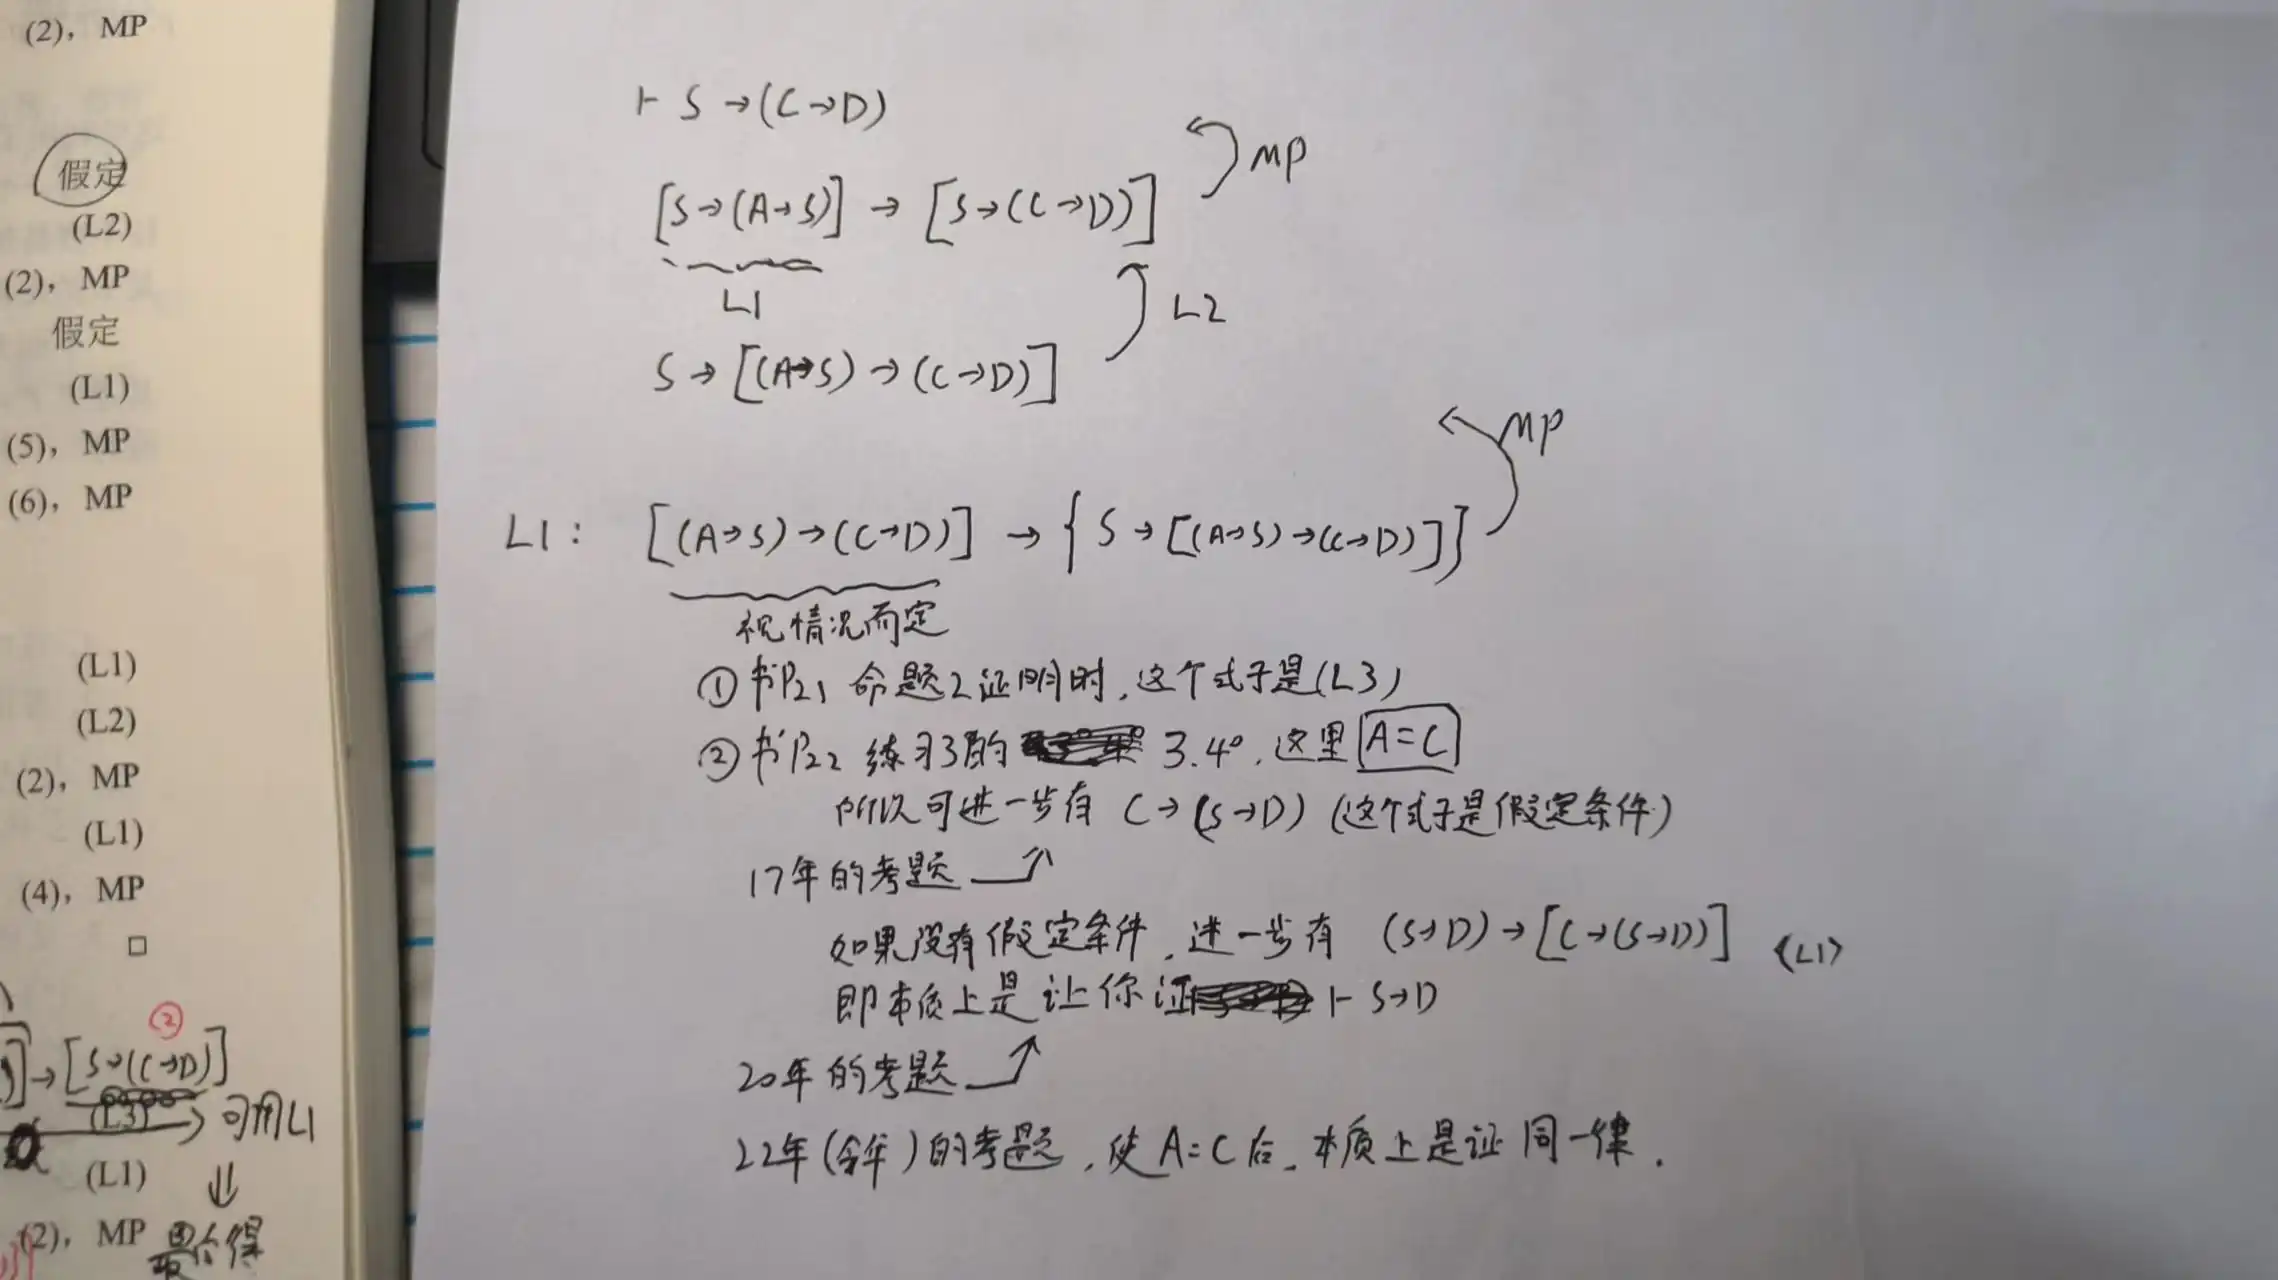 (2)，MP
假定
(L2)
(2)，MP
假定
(L1)
(5)，MP
(6)，MP
(L1)
(L2)
(2)，MP
(L1)
(4)，MP
□
②
]→[S→(C→D)]
(L3) → 可用L1
(L1) ⇓
(2)，MP
⊢ S→(C→D)
MP
[S→(A→S)] → [S→(C→D)]
L1
L2
S→[(A→S)→(C→D)]
MP
L1: [(A→S)→(C→D)] → {S→[(A→S)→(C→D)]}
视情况而定
①书P21 命题2证明时，这个式子是(L3)
②书P22 练习3的 3.4°，这里 A=C
所以可进一步有 C→(S→D) (这个式子是假定条件)
17年的考题
如果没有假定条件，进一步有 (S→D)→[C→(S→D)] (L1)
即本质上是让你证 ⊢ S→D
20年的考题
22年(今年)的考题，使A=C后，本质上是证同一律.